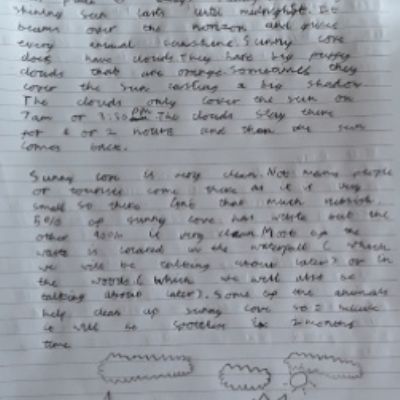 shining sun lasts until midnight. It
beams over the horizon and gives
every animal sunshine. Sunny cove
does have clouds. They have big puffy
clouds that are orange. Sometimes they
cover the sun casting a big shadow.
The clouds only cover the sun on
7am or 3:30 pm. The clouds stay there
for 1 or 2 hours and then the sun
comes back.
Sunny cove is very clean. Not many people
or tourists come there as it is very
small so there isnt that much rubbish.
5% of sunny cove has waste but the
other 95% is very clean. Most of the
waste is located in the waterfall ( which
we will be talking about later) or in
the woods ( which we will also be
talking about later). Some of the animals
help clean up sunny cove so I
it will be spotless in 2 months
time.